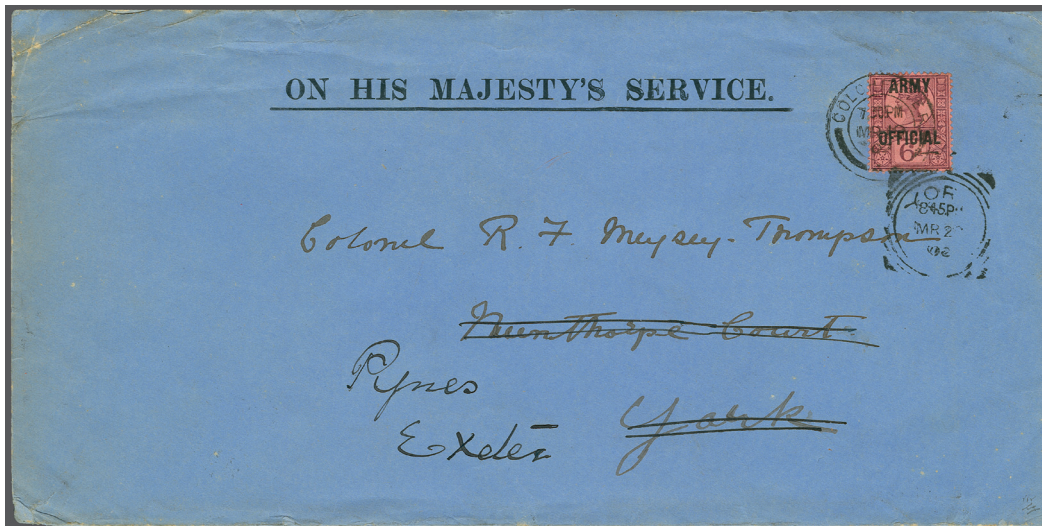 ON HIS MAJESTY'S SERVICE.
ARMY
OFFICIAL
6
COLC
7 30PM
MR
YOR
845P
MR 2
02
Colonel R. F. Meysey-Thompson
Nunthorpe Court
York
Pynes
Exeter